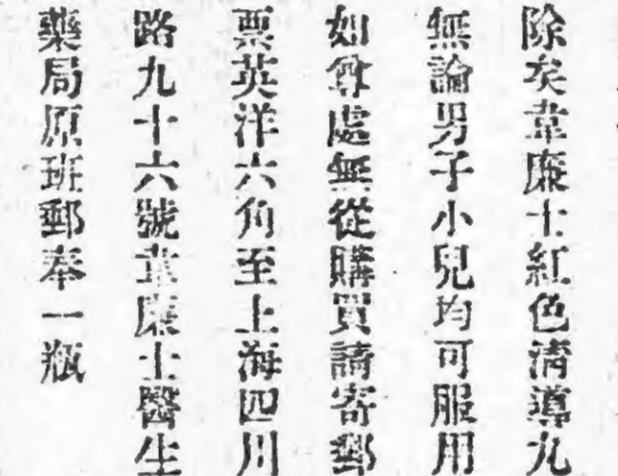 除矣韋廉士紅色清導丸
無論男子小兒均可服用
如尊處無從購買請寄郵
票英洋六角至上海四川
路九十六號韋廉士醫生
藥局原班郵奉一瓶